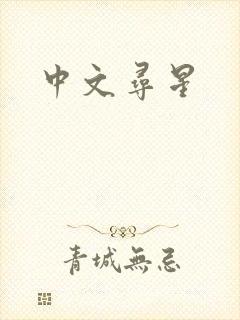 中文尋星
青城無忌